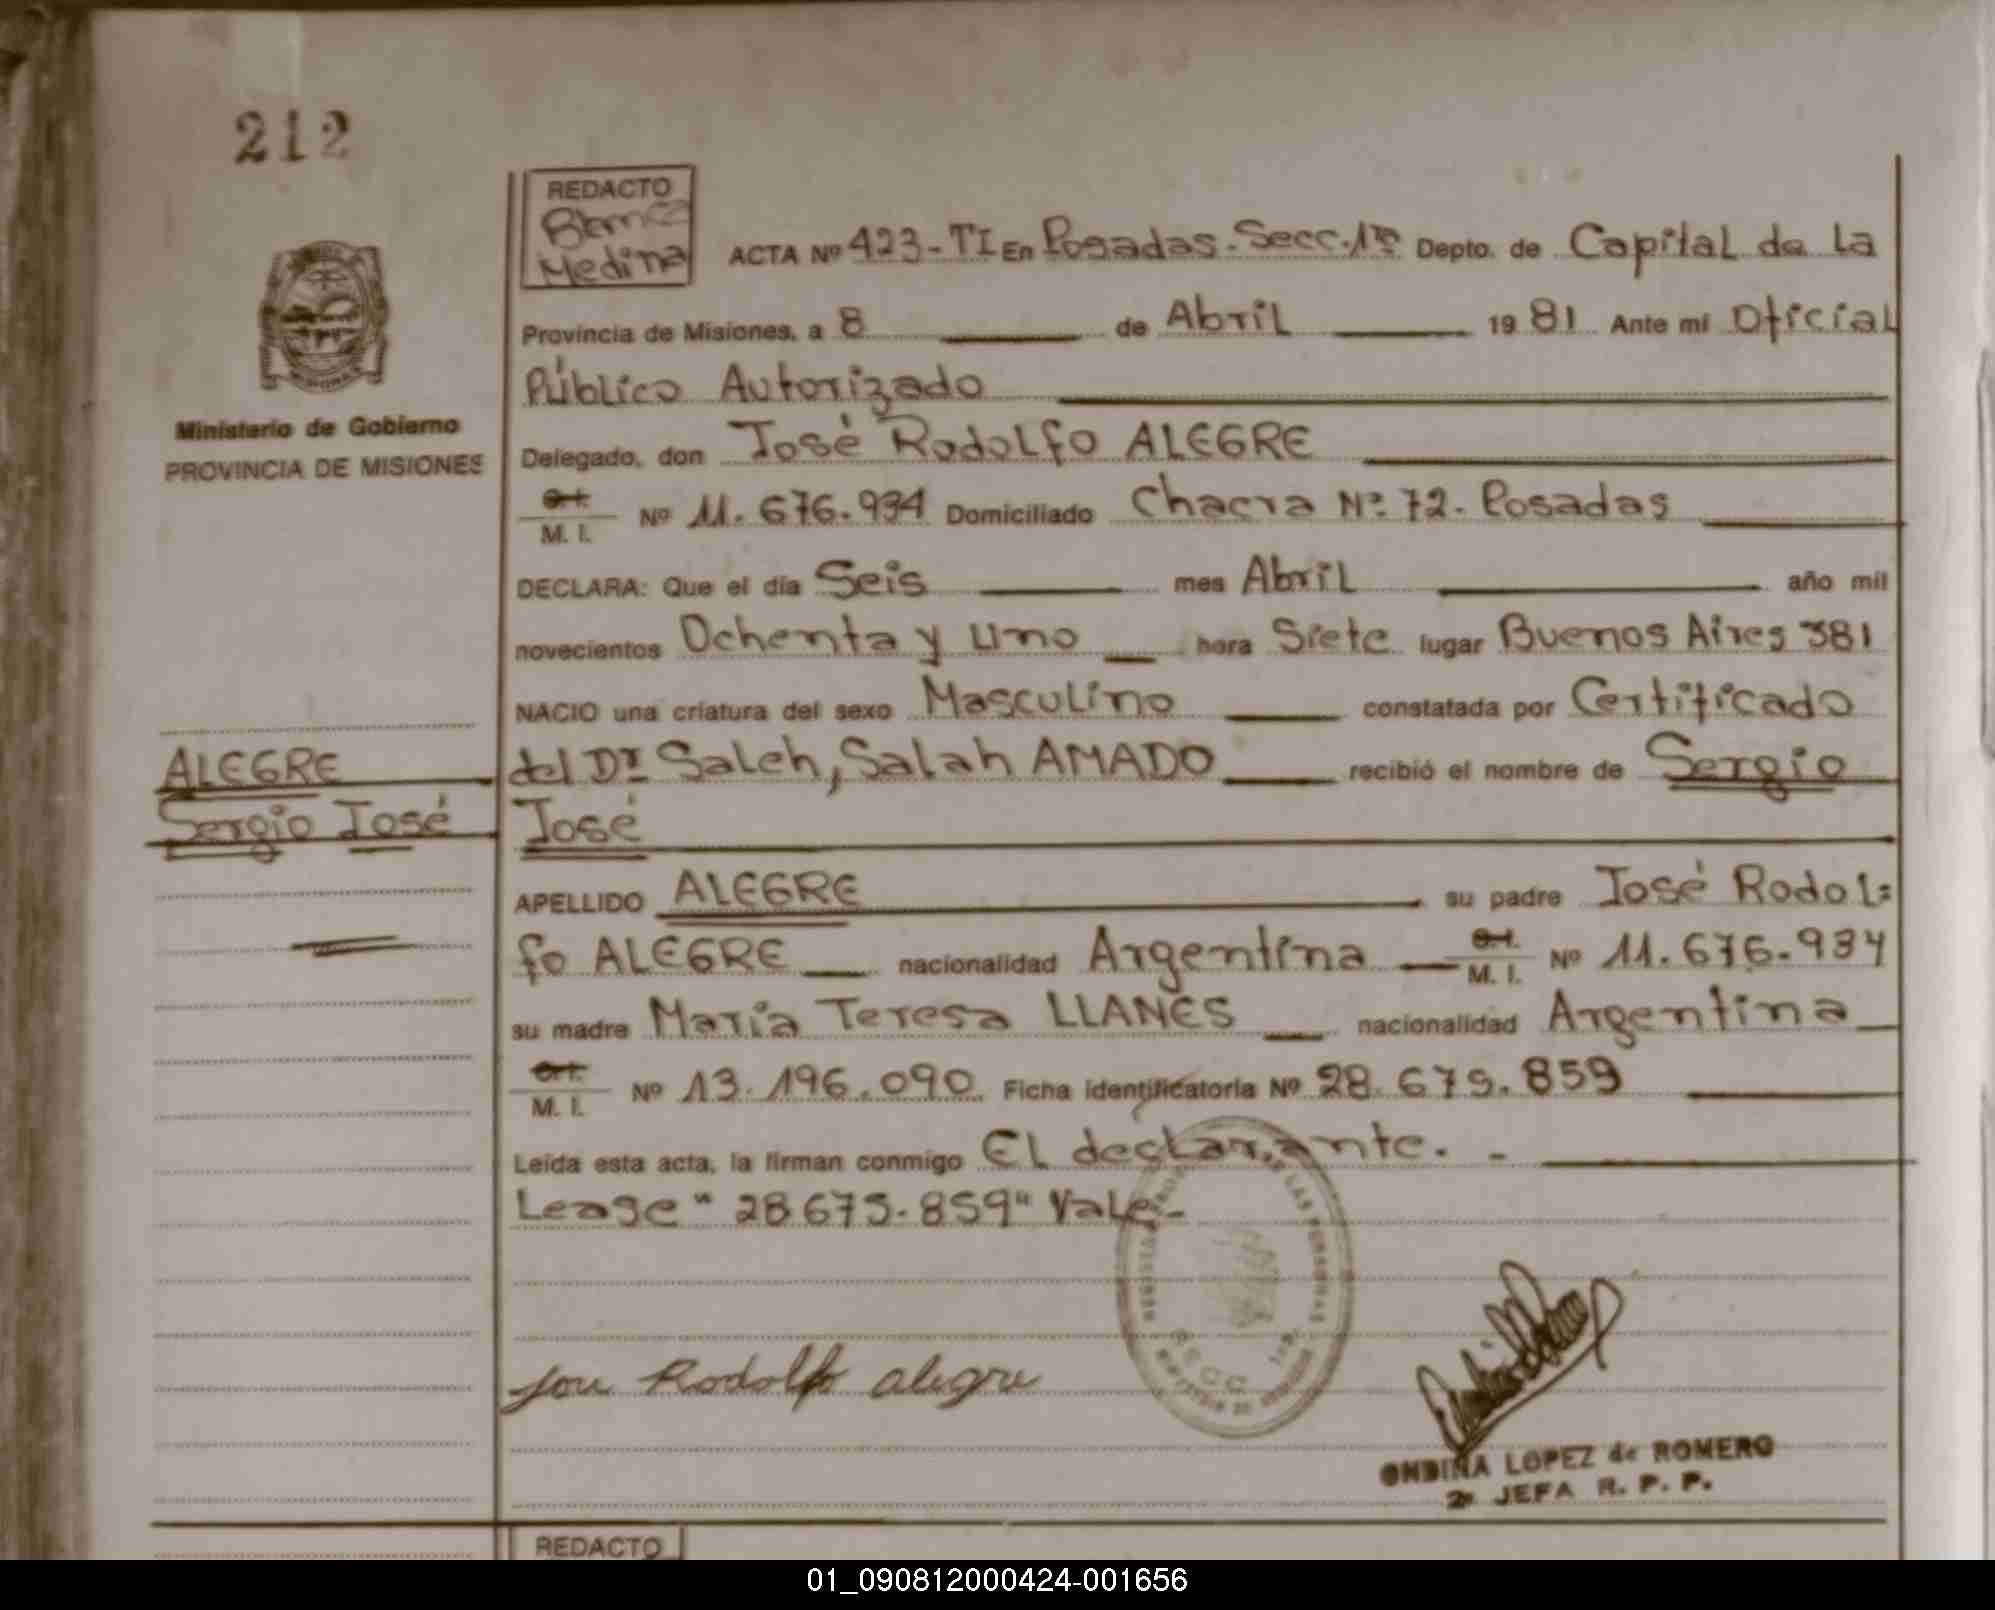 212
REDACTO
Blanca
Medina
ACTA Nº 423-TI En Posadas.Secc.1ra Depto. de Capital de la
Provincia de Misiones, a 8 de Abril 19 81 Ante mí Oficial
Público Autorizado
Ministerio de Gobierno
PROVINCIA DE MISIONES
Delegado, don José Rodolfo ALEGRE
M. I. Nº 11.676.934 Domiciliado Chacra Nº 72. Posadas
DECLARA: Que el día Seis mes Abril año mil
novecientos Ochenta y Uno hora Siete lugar Buenos Aires 381
NACIO una criatura del sexo Masculino constatada por Certificado
ALEGRE
Sergio José
del Dr Saleh, Salah AMADO recibió el nombre de Sergio
José
APELLIDO ALEGRE su padre José Rodol=
fo ALEGRE nacionalidad Argentina M. I. Nº 11.676.934
su madre María Teresa LLANES nacionalidad Argentina
M. I. Nº 13.196.090 Ficha identificatoria Nº 28.675.859
Leída esta acta, la firman conmigo El declarante. -
Lease "28.675.859" Vale-
SECC. 1ra
José Rodolfo Alegre
ONDINA LOPEZ de ROMERO
2a JEFA R. P. P.
REDACTO
01_090812000424-001656